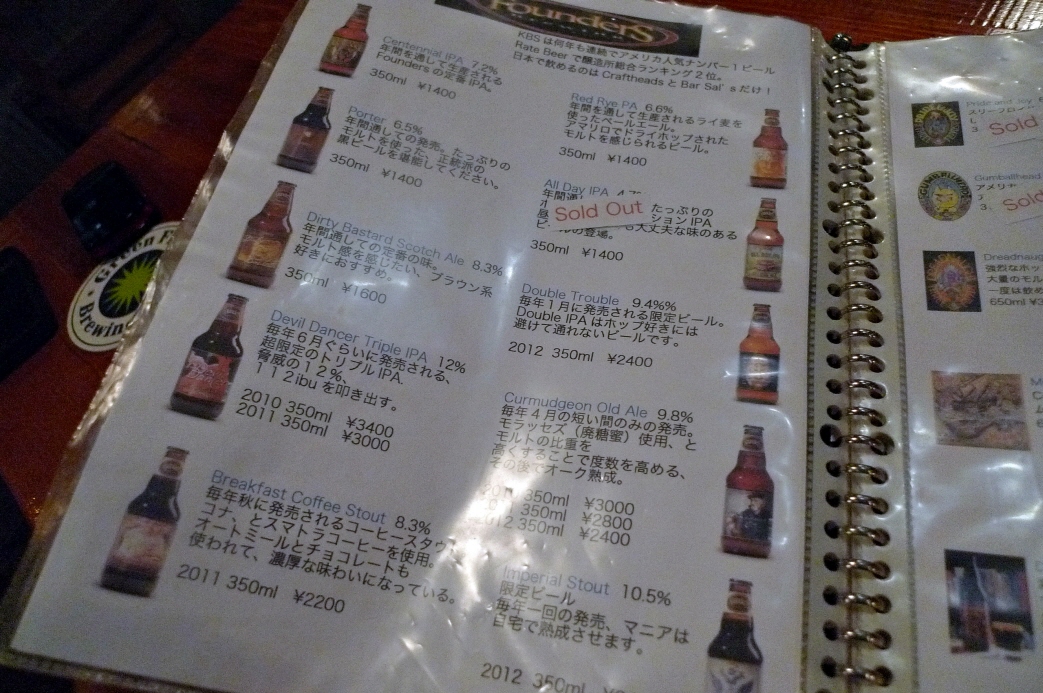 Founders
KBS は何年も連続でアメリカ人気ナンバー1ビール
Rate Beer で醸造所総合ランキング2位。
日本で飲めるのは Craftheads と Bar Sal's だけ!
Centennial IPA 7.2%
年間を通して生産される
Founders の定番 IPA。
350ml ¥1400
Porter 6.5%
年間通しての発売。たっぷりの
モルトを使った、正統派の
黒ビールを堪能してください。
350ml ¥1400
Dirty Bastard Scotch Ale 8.3%
年間通しての定番の味。
モルト感を感じたい、ブラウン系
好きにおすすめ。
350ml ¥1600
Devil Dancer Triple IPA 12%
毎年6月ぐらいに発売される、
超限定のトリプル IPA.
脅威の12%、
112ibu を叩き出す。
2010 350ml ¥3400
2011 350ml ¥3000
Breakfast Coffee Stout 8.3%
毎年秋に発売されるコーヒースタウ
コナ、とスマトラコーヒーを使用。
オートミールとチョコレートも
使われて、濃厚な味わいになっている。
2011 350ml ¥2200
Red Rye PA 6.6%
年間を通して生産されるライ麦を
使ったペールエール。
アマリロでドライホップされた
モルトを感じられるビール。
350ml ¥1400
All Day IPA
年間通
Sold Out
たっぷりの
ション IPA
も大丈夫な味のある
ルの登場。
350ml ¥1400
Double Trouble 9.4%%
毎年1月に発売される限定ビール。
Double IPA はホップ好きには
避けて通れないビールです。
2012 350ml ¥2400
Curmudgeon Old Ale 9.8%
毎年4月の短い間のみの発売。
モラッセズ(廃糖蜜)使用、と
モルトの比重を
高くすることで度数を高める、
その後でオーク熟成。
350ml ¥3000
350ml ¥2800
2012 350ml ¥2400
Imperial Stout 10.5%
限定ビール
毎年一回の発売、マニアは
自宅で熟成させます。
2012 350ml
Green
Brewin
Pride and Joy
Sold
Gumballhead
アメリカ
Sold
Dreadnaug
強烈なホッ
大量のモル
一度は飲め
650ml